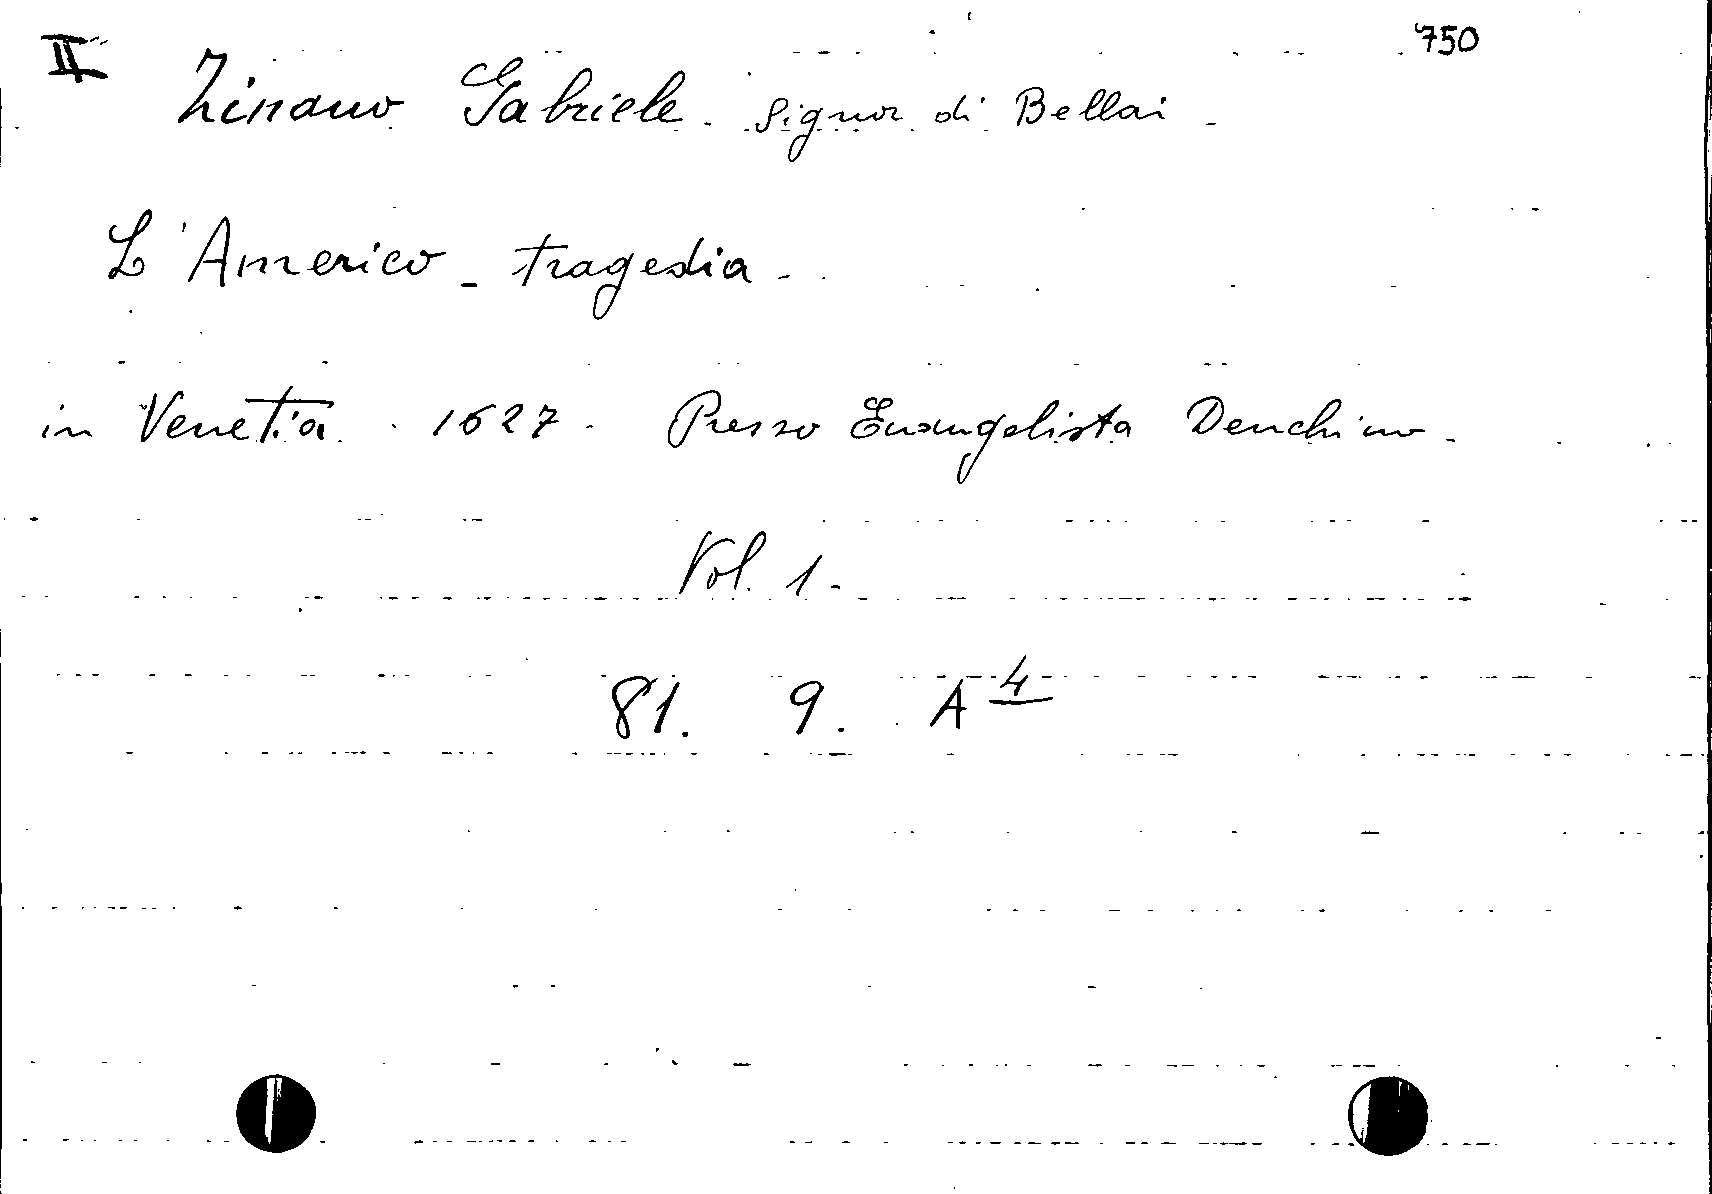 II 750
Zinano Gabriele. signor di Bellai -
L'Americo - tragedia -
in Venetia. 1627. Presso Euangelista Deuchino -
Vol. 1 -
81. 9. A 4